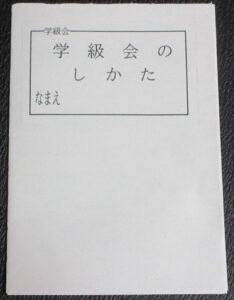 学級会
学級会の
しかた
なまえ